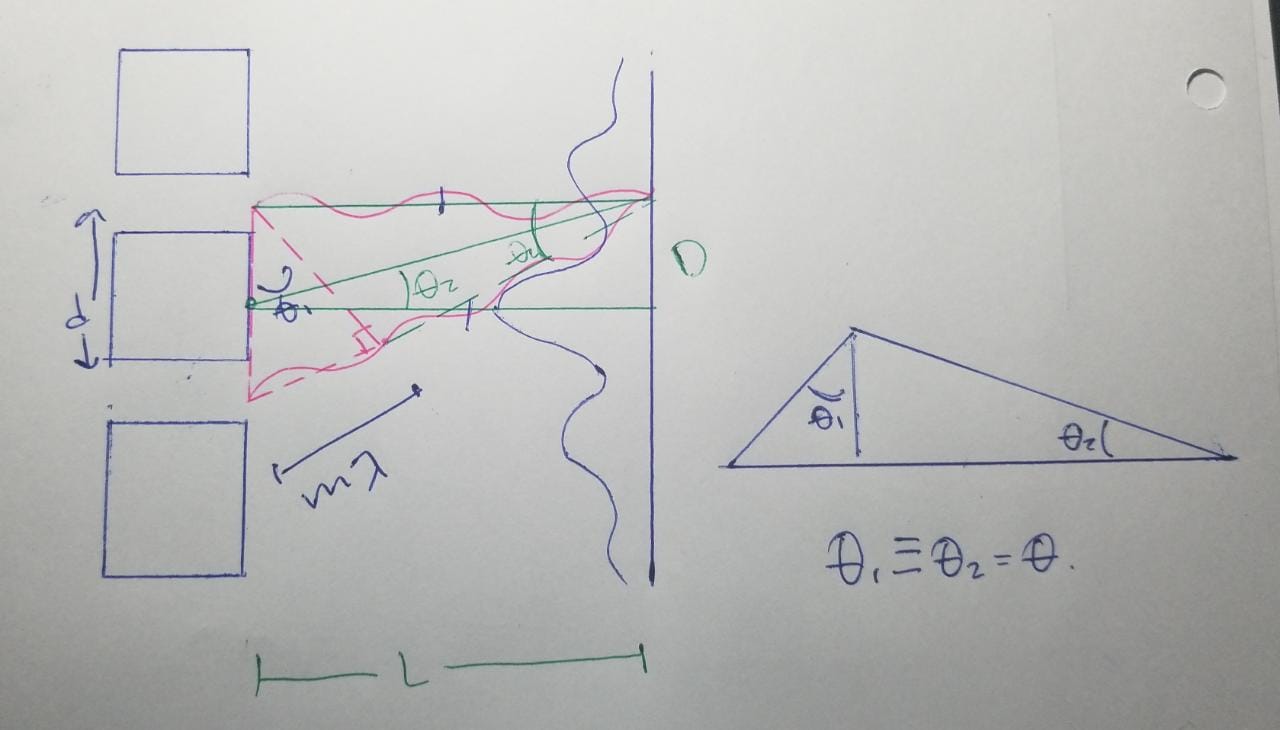 d
θ₁
θ₂
θ₂
D
mλ
L
θ₁
θ₂
θ₁ ≡ θ₂ = θ.